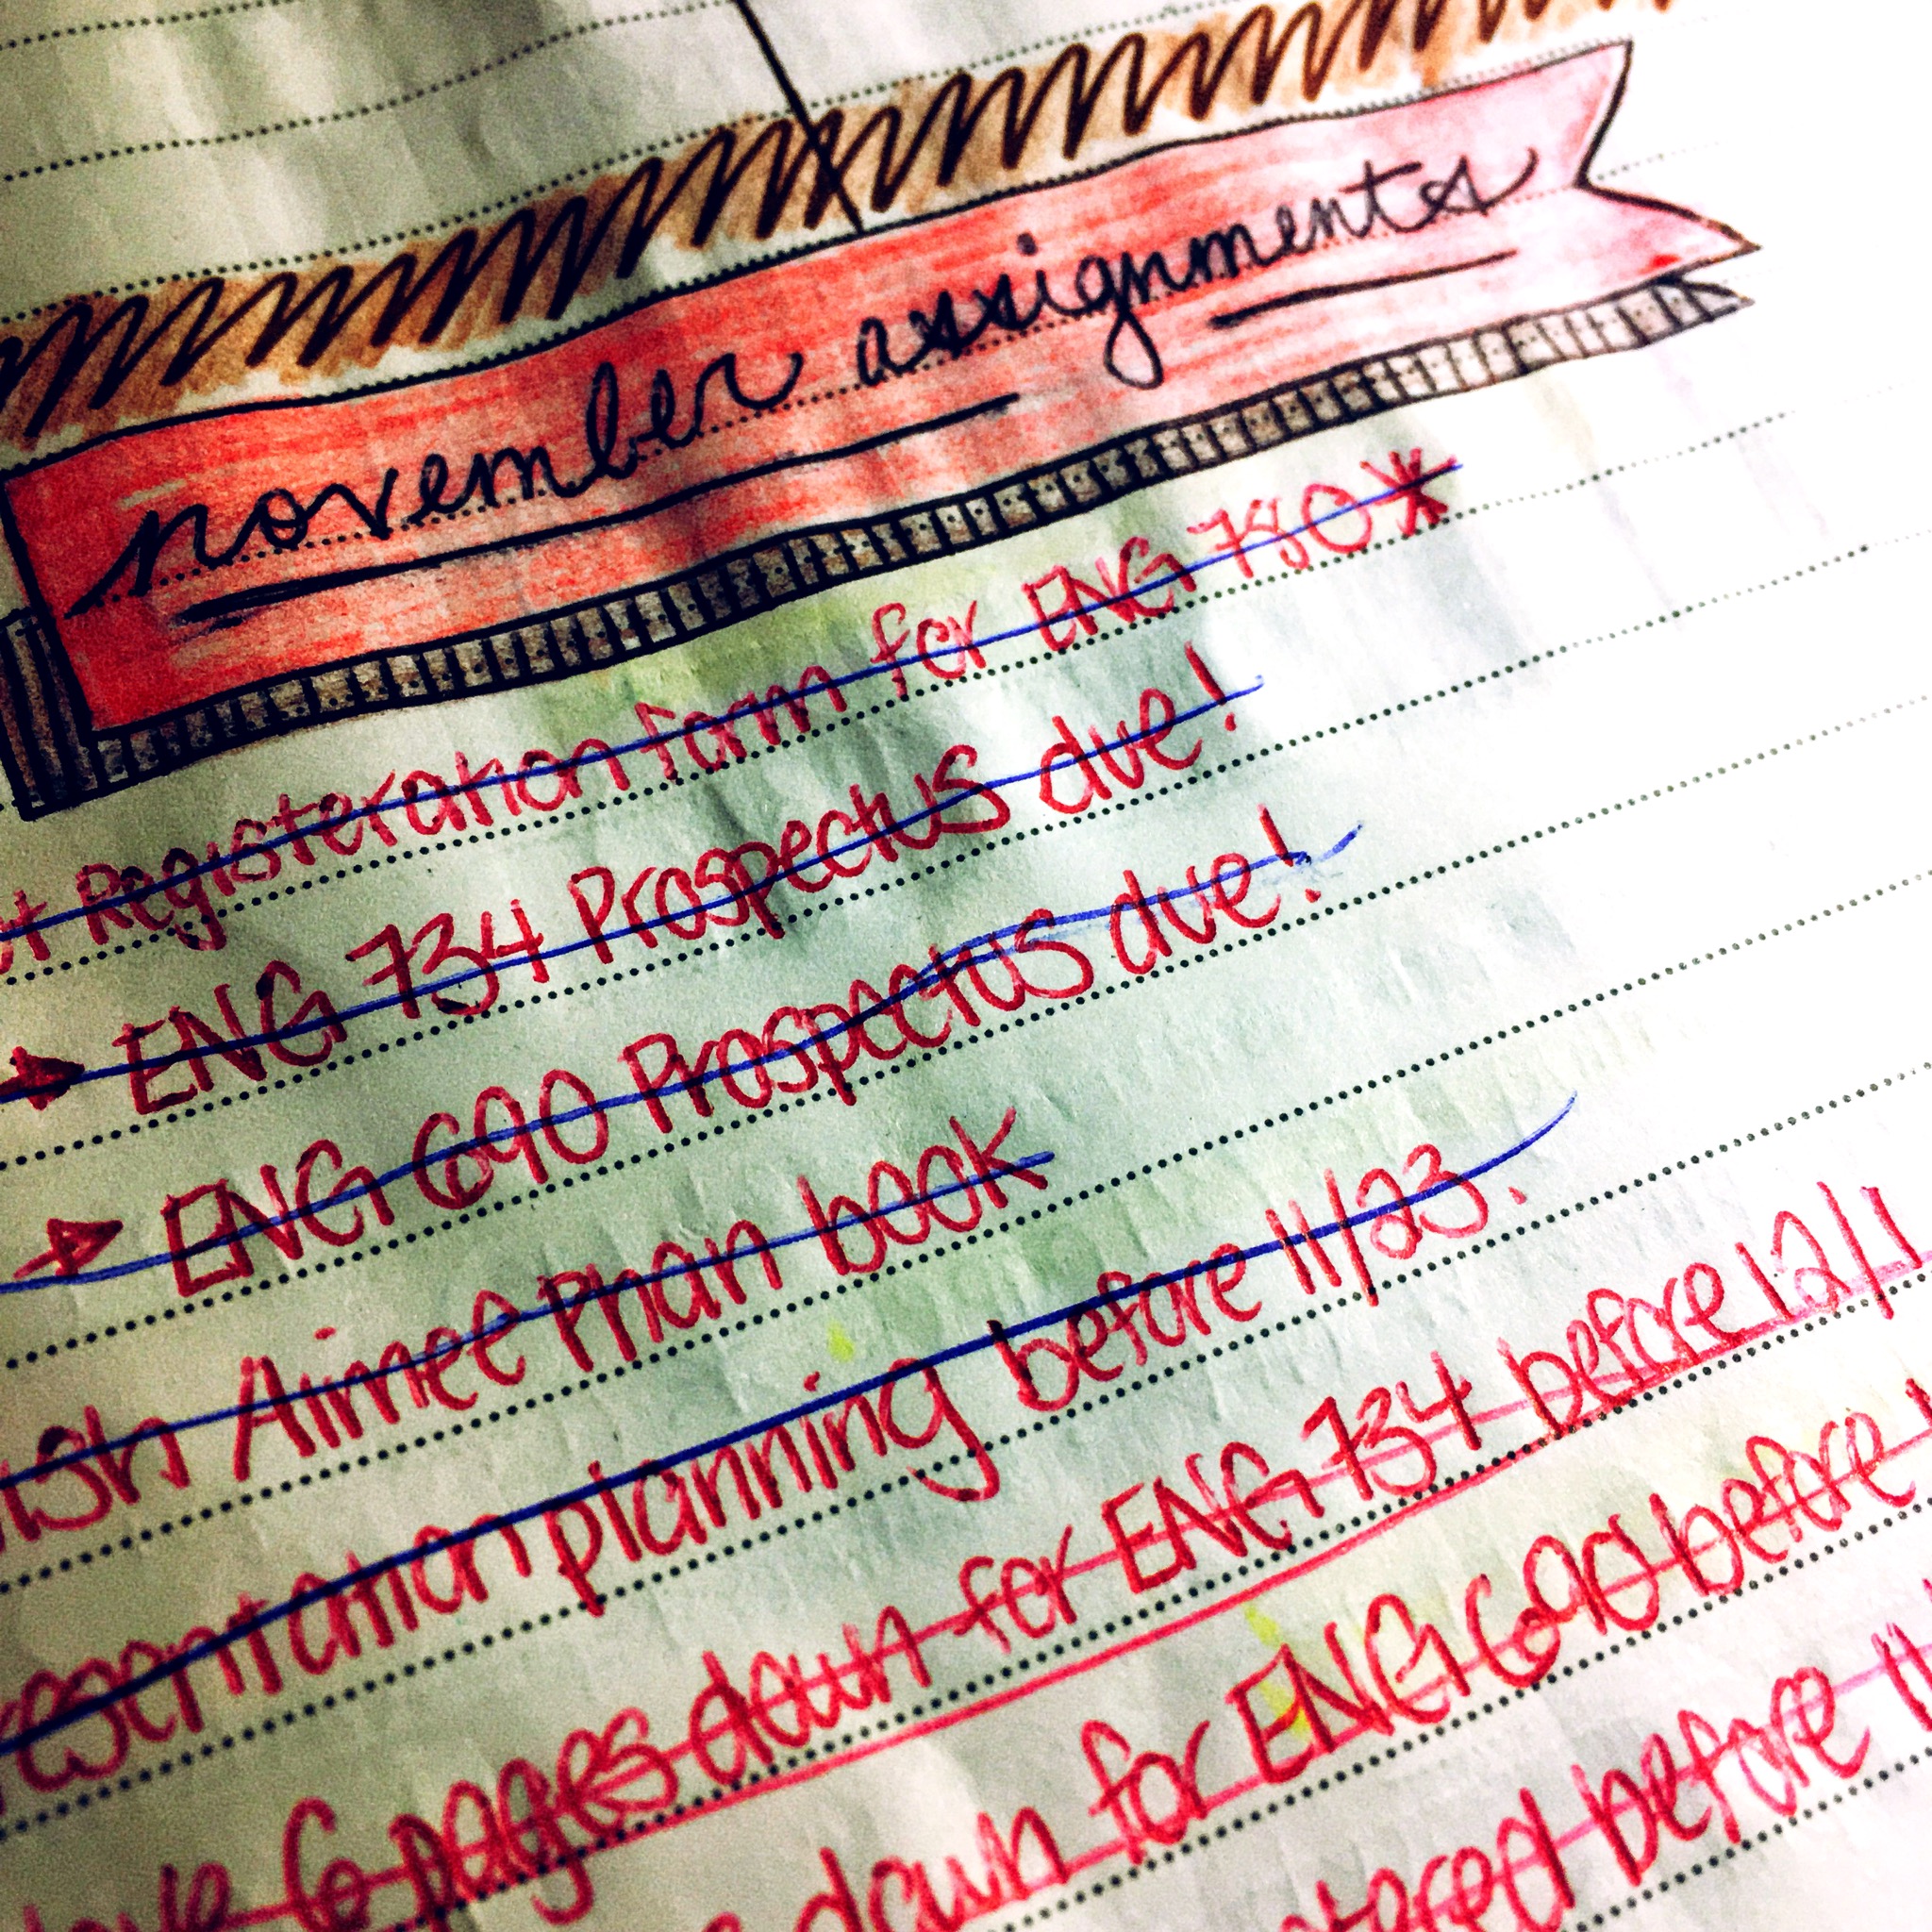 november assignments
Registeration form for ENG 780*
ENG 734 Prospectus due!
ENG 690 Prospectus due!
Aimee Phan book
planning before 11/23.
6 pages down for ENG 734 before 12/1
down for ENG 690 before
before